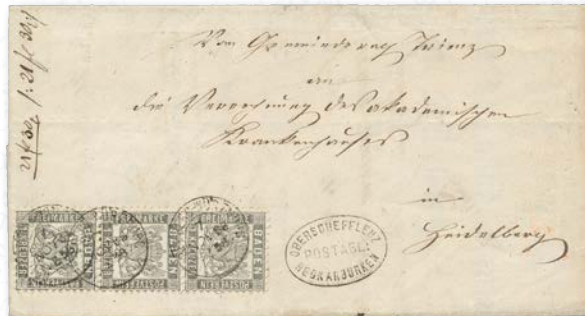 Vom Gemeinderath Trienz
an
die Verrechnung des akademischen
Krankenhauses
in
Heidelberg
OBERSCHEFFLENZ
POSTABL.
NECKARBURKEN
FREIMARKE
BADEN
POSTVEREIN
FREIMARKE
BADEN
POSTVEREIN
FREIMARKE
BADEN
POSTVEREIN